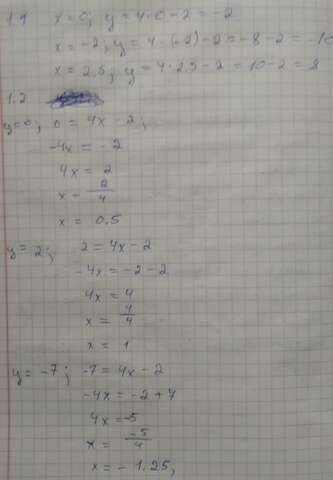 1.1 x = 0; y = 4·0-2 = -2
x = -2; y = 4·(-2)-2 = -8-2 = -10
x = 2,5; y = 4·2.5-2 = 10-2 = 8
1.2
y=0; 0 = 4x-2;
-4x = -2
4x = 2
x = 2/4
x = 0.5
y = 2; 2 = 4x-2
-4x = -2-2
4x = 4
x = 4/4
x = 1
y = -7; -7 = 4x-2
-4x = -2+7
4x = -5
x = -5/4
x = -1.25;